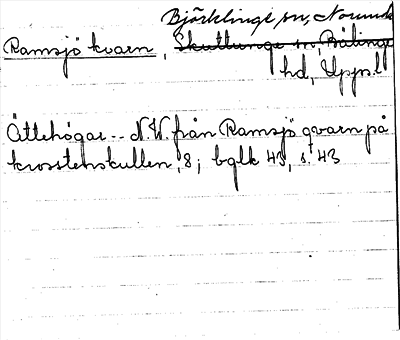 Björklinge sn, Norunda
Ramsjö kvarn, Skuttunge sn, Bälinge
hd, Uppl
Ättehögar -- N.W. från Ramsjö qvarn på
krosstenskullen, 8; bglk 43, s. 43